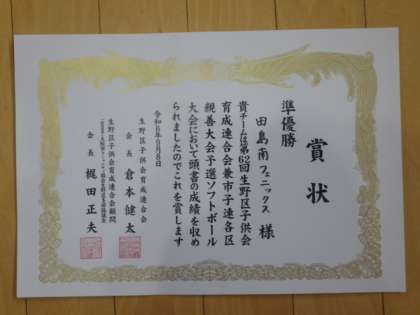 賞状
準優勝
田島南フェニックス 様
貴チームは第62回生野区子供会
育成連合会兼市子連各区
親善大会予選ソフトボール
大会において頭書の成績を収め
られましたのでこれを賞します
生野区子供会育成連合会
会長 倉本健太
生野区子供会育成連合会顧問
会長 梶田正夫